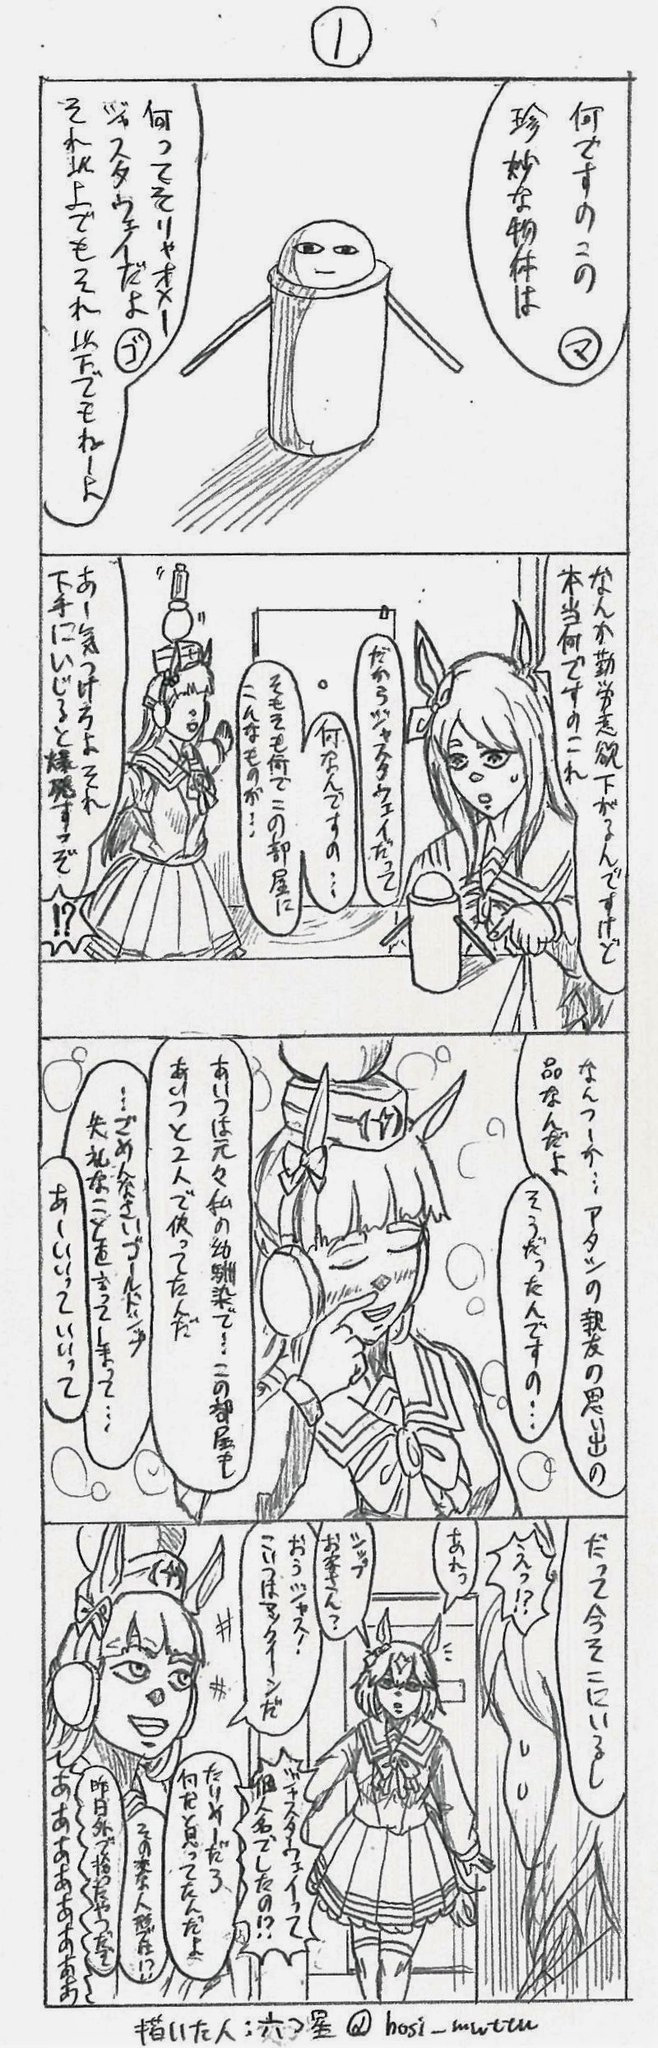 1
何ですのこの
珍妙な物体は
マ
何ってそりゃオメー
ジャスタウェイだよ
ゴ
それ以上でもそれ以下でもねーよ
なんか勤労意欲下がるんですけど
本当何ですのこれ
だからジャスタウェイだって
何なんですの…
そもそも何でこの部屋に
こんなものが…
あー気つけろよそれ
下手にいじると爆発すっぞ
!?
なんつーか…アタシの親友の思い出の
品なんだよ
そうだったんですの…
あいつは元々私の幼馴染で…この部屋も
あいつと2人で使ってたんだ
…ごめんなさいゴールドシップ
失礼なこと言ってしまって…
あーいいっていいって
だって今そこにいるし
えっ!?
あれっ
シップ
お客さん?
おうジャス!
こいつはマックイーンだ
ジャスタウェイって
個人名でしたの!?
たりめーだろ
何だと思ってたんだよ
その変な人形は!?
昨日外で拾ったやつだぞ
描いた人:六つ星@hosi_muttu